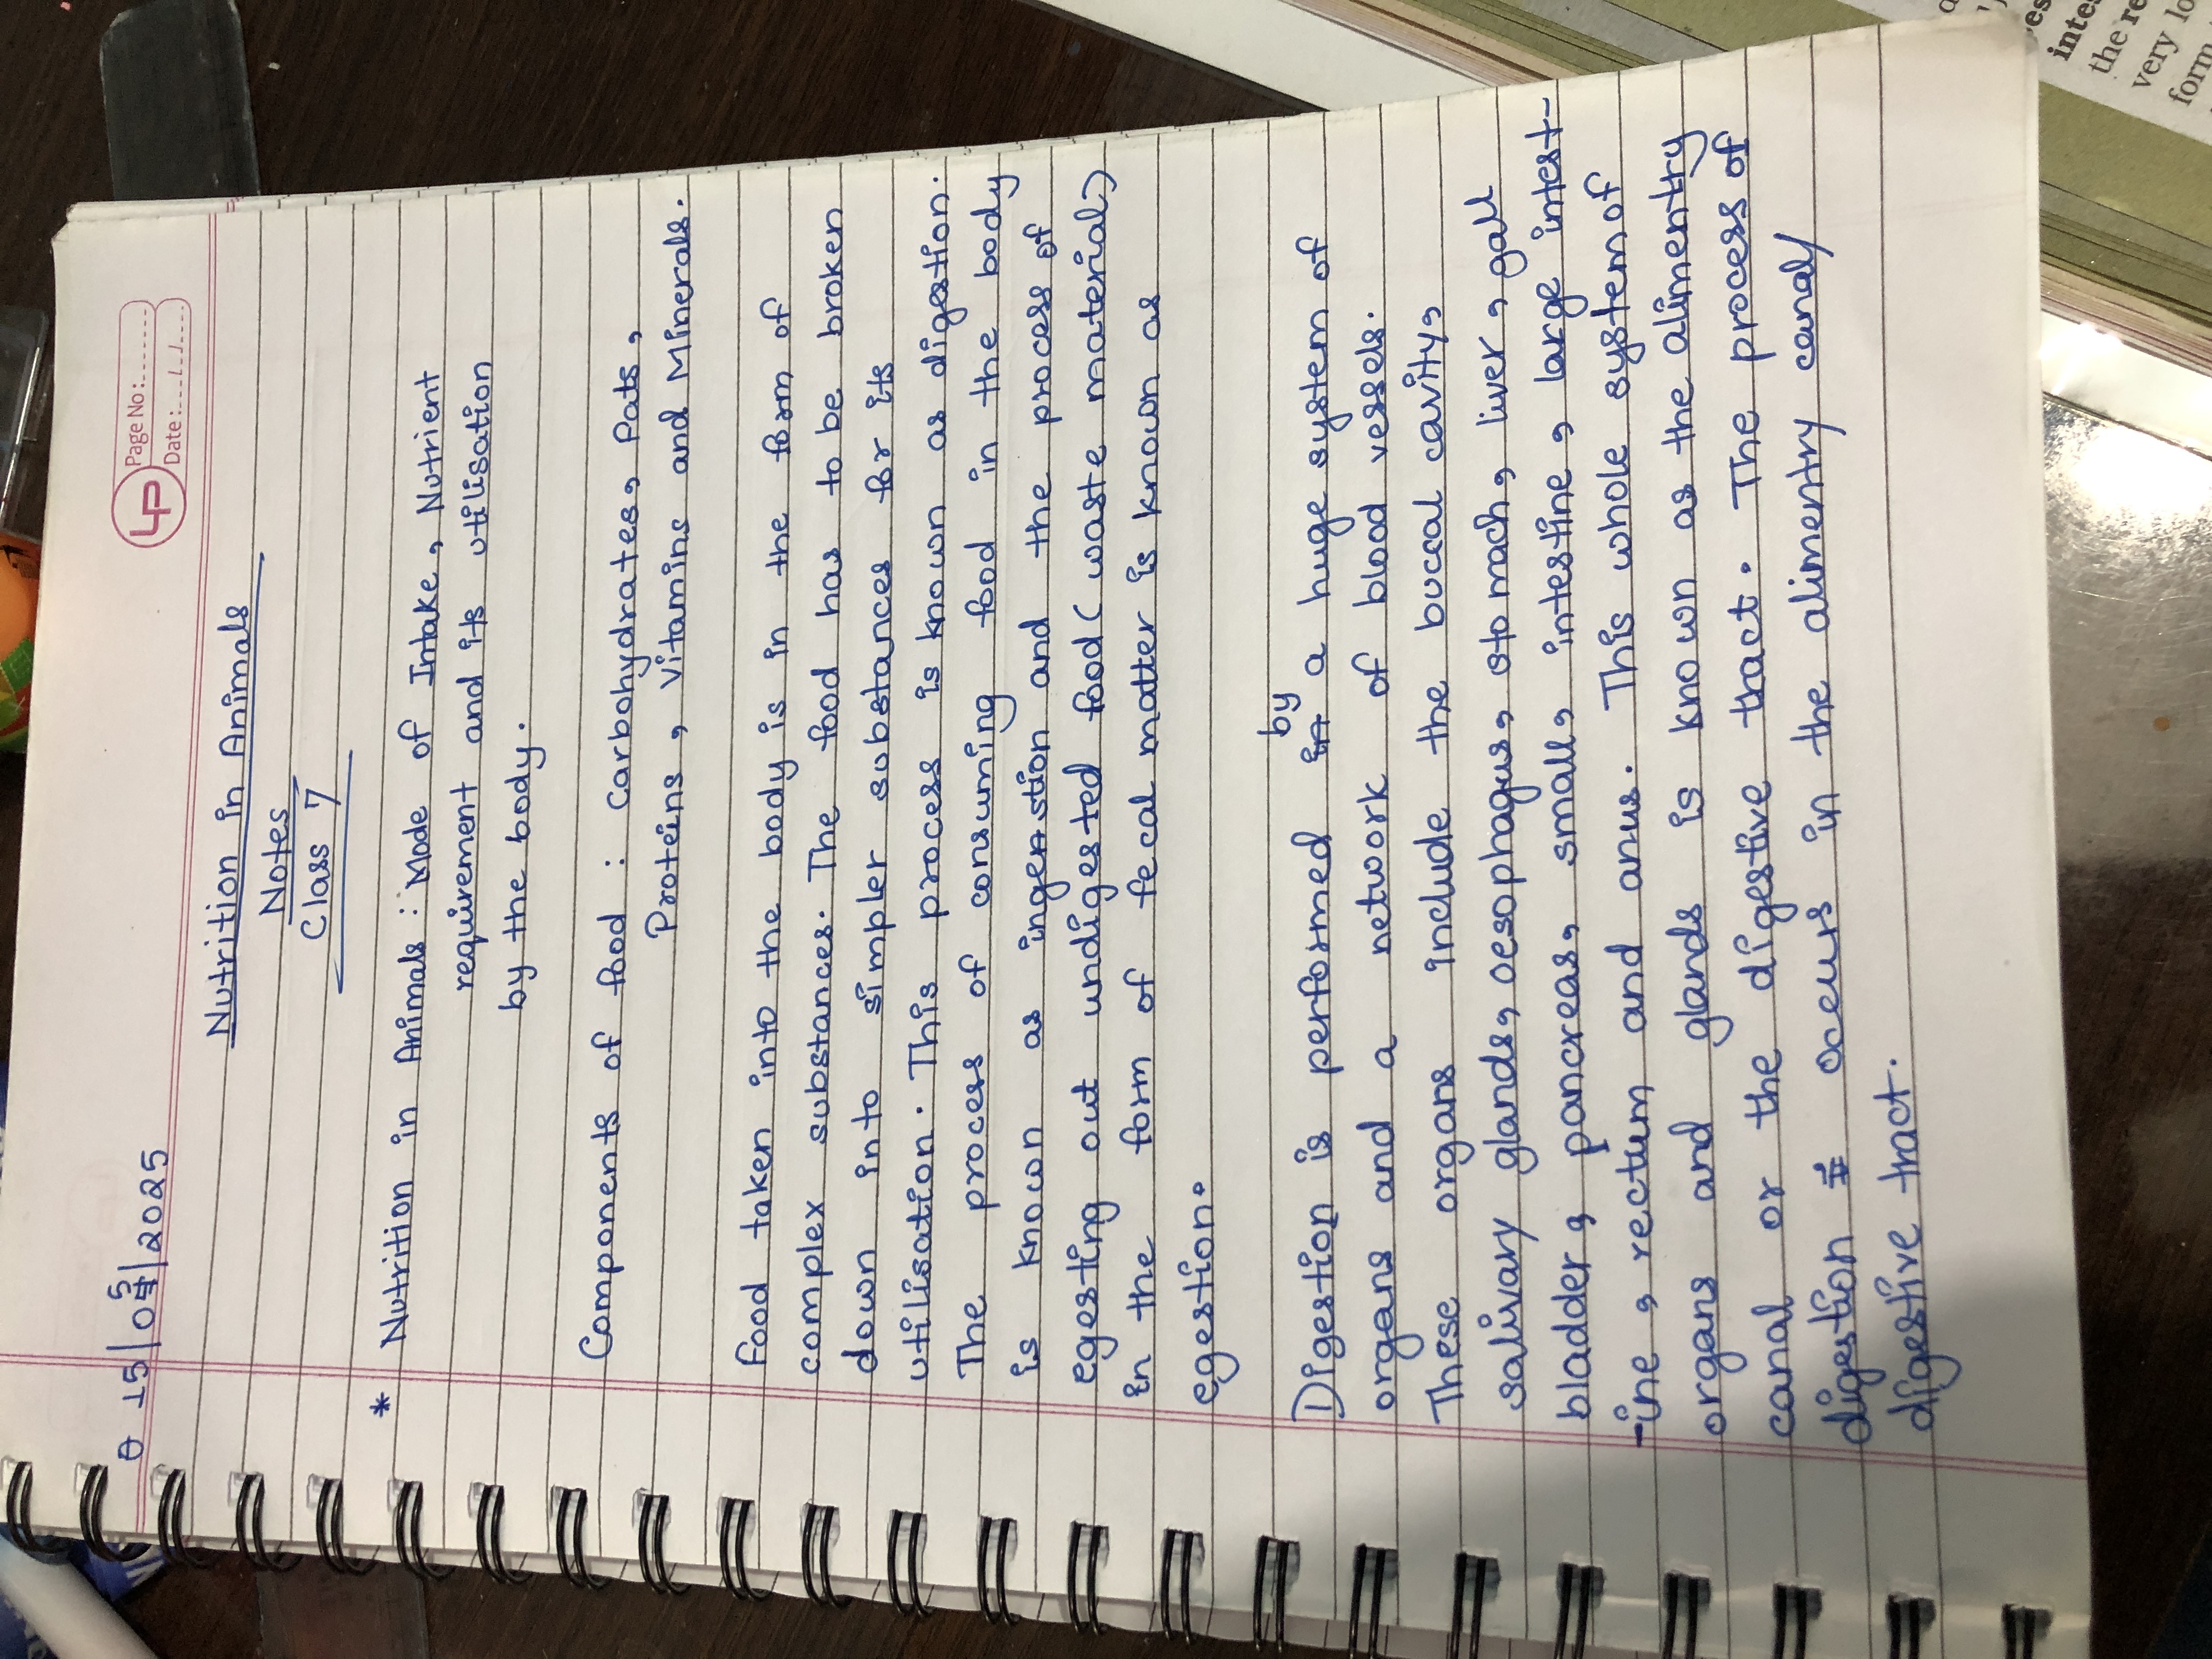 LP Page No:
Date:
15/05/2025
Nutrition in Animals
Notes
Class 7
* Nutrition in Animals : Mode of Intake, Nutrient
requirement and its utilisation
by the body.
Components of food : Carbohydrates, Fats,
Proteins, Vitamins and Minerals.
Food taken into the body is in the form of
complex substances. The food has to be broken
down into simpler substances for its
utilisation. This process is known as digestion.
The process of consuming food in the body
is known as ingestion and the process of
egesting out undigested food (waste material)
in the form of fecal matter is known as
egestion.
by
Digestion is performed in a huge system of
organs and a network of blood vessels.
These organs include the buccal cavity,
salivary glands, oesophagus, stomach, liver, gall
bladder, pancreas, small, intestine, large intest-
-ine, rectum and anus. This whole system of
organs and glands is known as the alimentry
canal or the digestive tract. The process of
digestion occurs in the alimentry canal/
digestive tract.
inte
the re
very lo
form